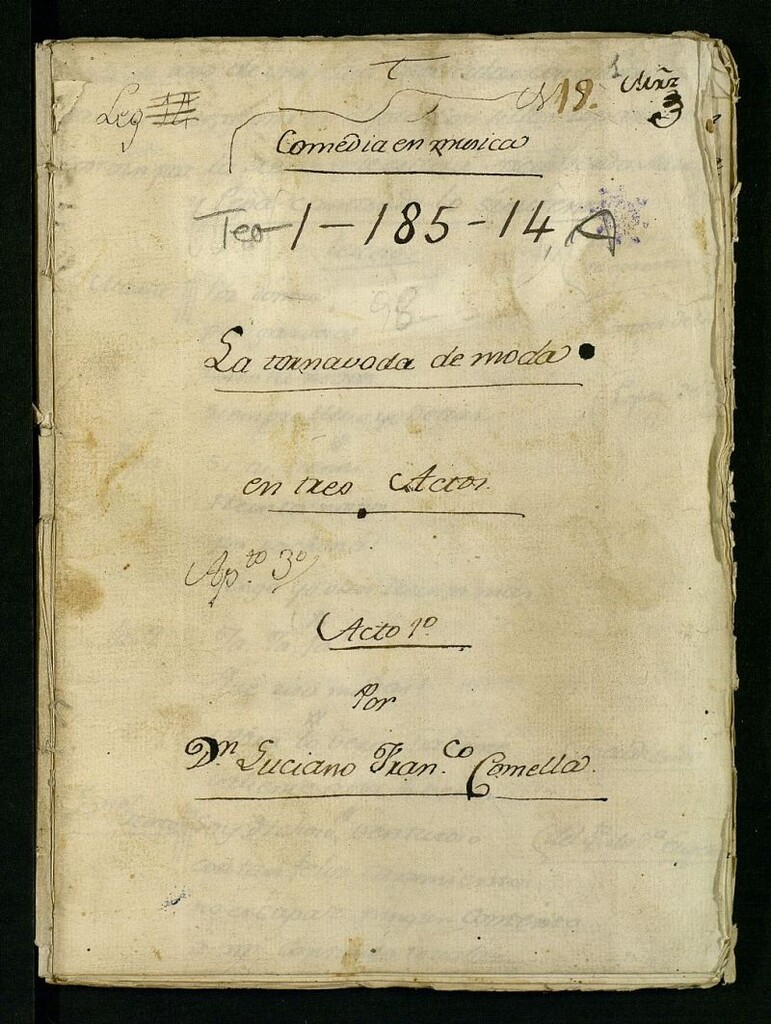 T
Leg 14 N 19. 1
3
Comedia en musica
Tea 1-185-14, A
98
La tornavoda de moda
en tres Actos.
Ap.to 3º
Acto 1º
Por
Dn Luciano Fran.co Comella.